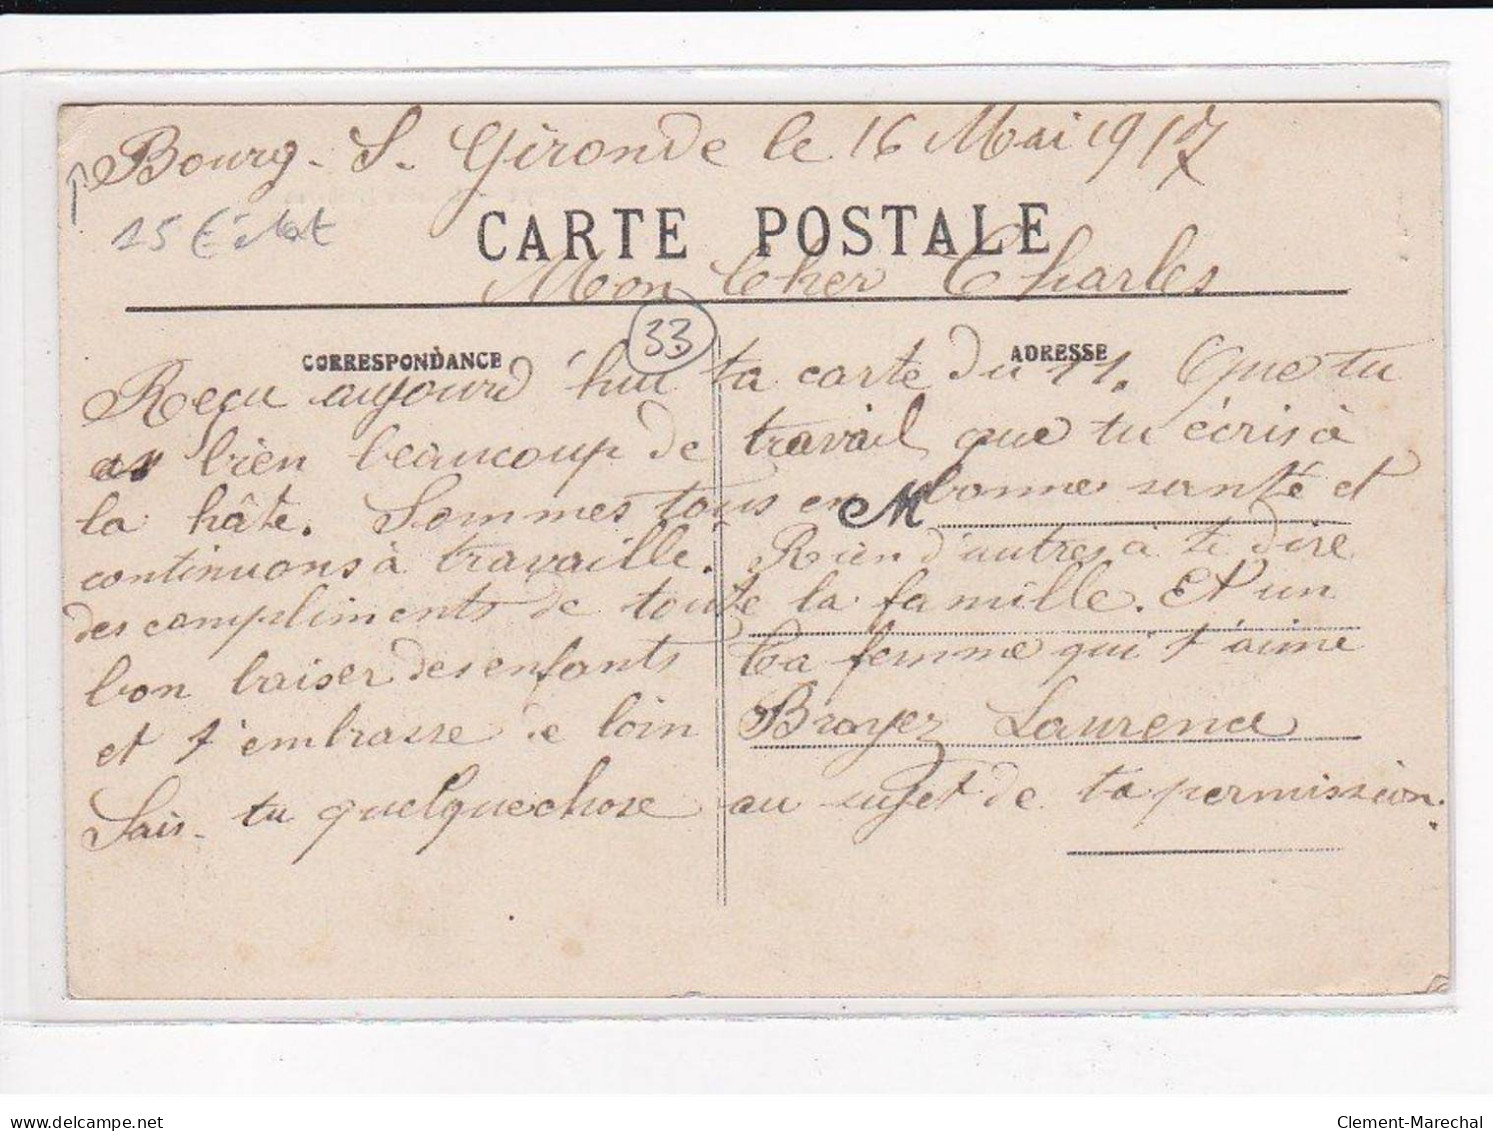 Bourg-S-Gironde le 16 Mai 1917
15 € état
CARTE POSTALE
Mon Cher Charles
33
CORRESPONDANCE ADRESSE
Reçu aujourd'hui ta carte du 11. Que tu
as bien beaucoup de travail que tu écris à
la hâte. Sommes tous en bonne santé et
M
continuons à travaille. Rien d'autres à te dire
des compliments de toute la famille. Et un
bon baiser des enfants Ta femme qui t'aime
et t'embrasse de loin Broyer Laurence
Sais-tu quelquechose au sujet de ta permission.
delcampe.net
Clement-Marechal